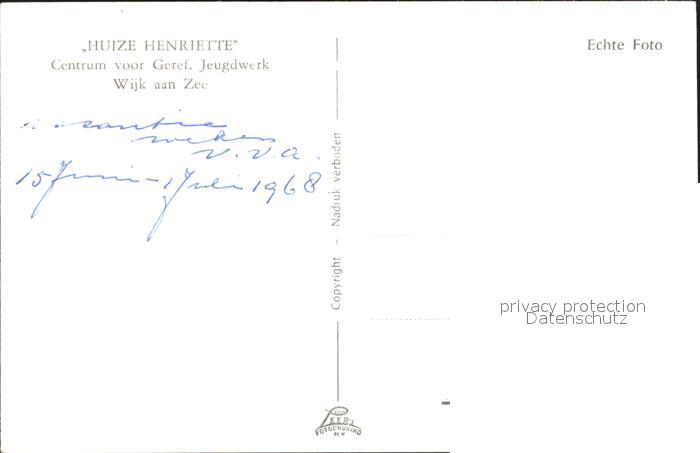 „HUIZE HENRIETTE"
Centrum voor Geref. Jeugdwerk
Wijk aan Zee
Echte Foto
vacantie
weken
V.V.A.
15 Juni - 1 Juli 1968
Copyright - Nadruk verboden
privacy protection
Datenschutz
PEER'S
FOTODRUKIND
N.V.